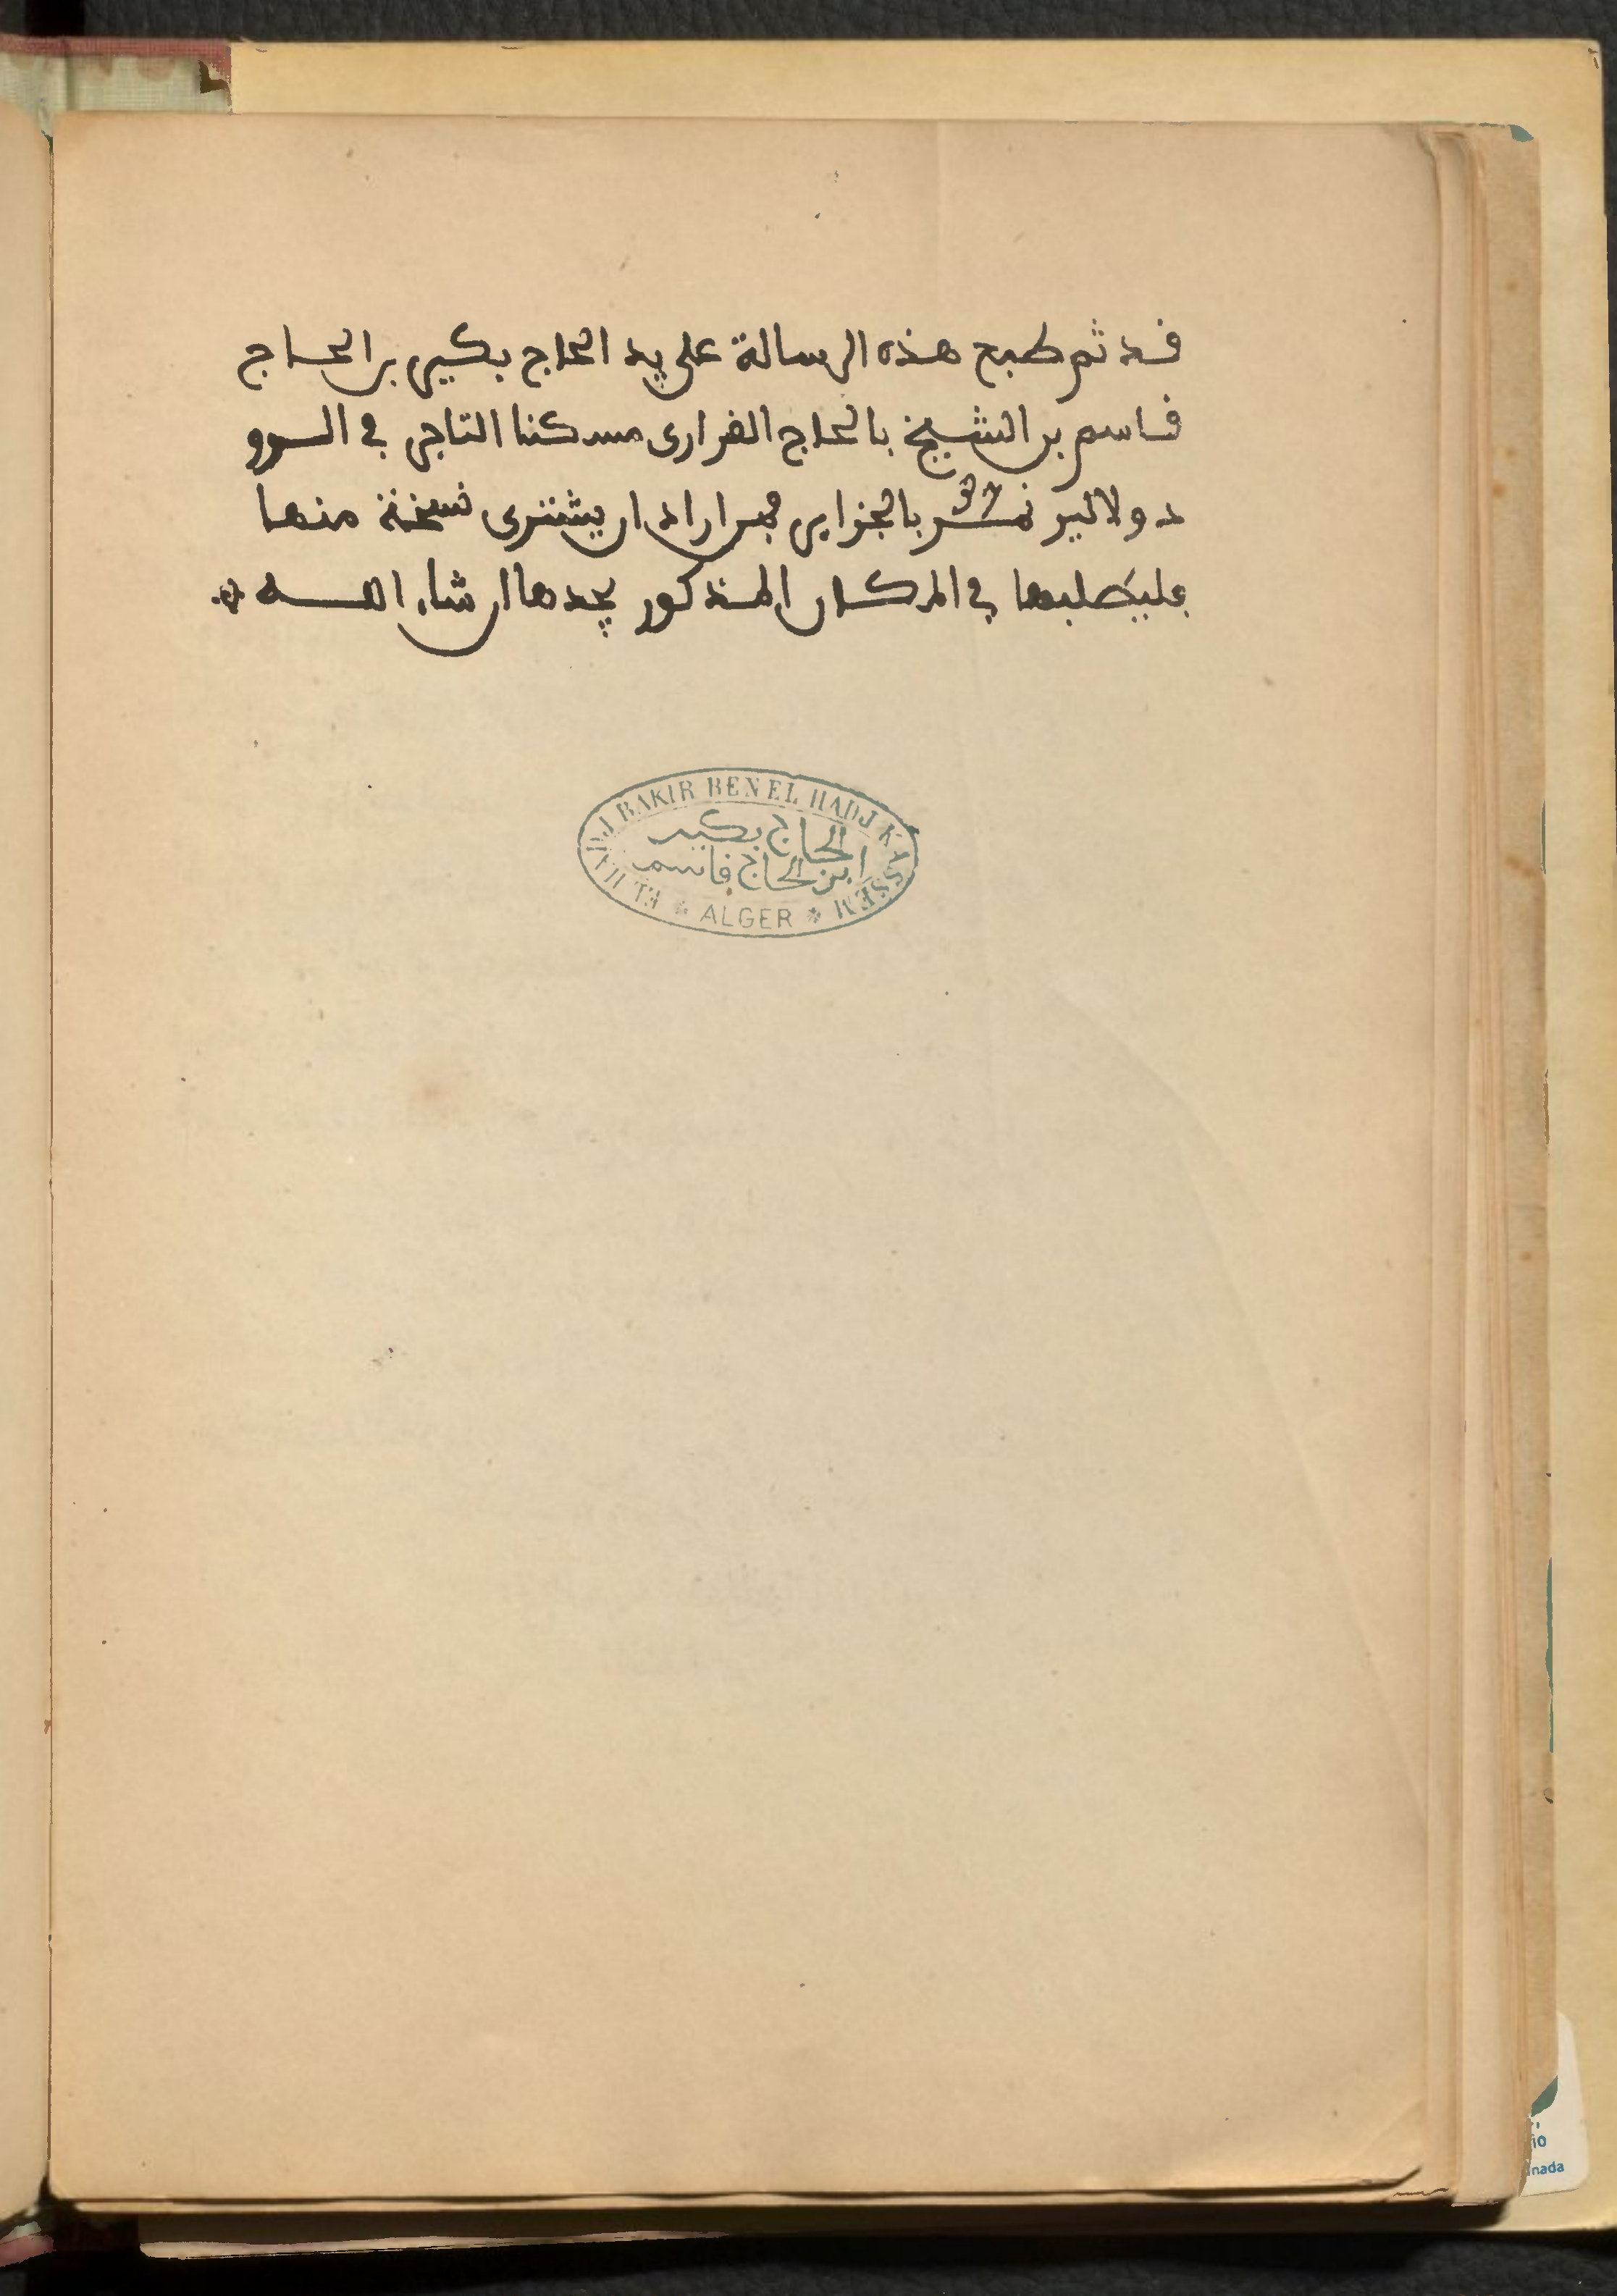 قد تم طبع هذه الرسالة على يد الحاج بكير بن الحاج
قاسم بن الشيخ بالحاج القرارى مسكنا التاجر في السوق
دولالير نمر بالجزاير فمن اراد ان يشترى نسخة منها
فليطلبها في المركان المذكور يجدها ان شاء الله
EL HADJ BAKIR BEN EL HADJ KASSEM
الحاج بكير
ابن الحاج قاسم
* ALGER *
io
nada